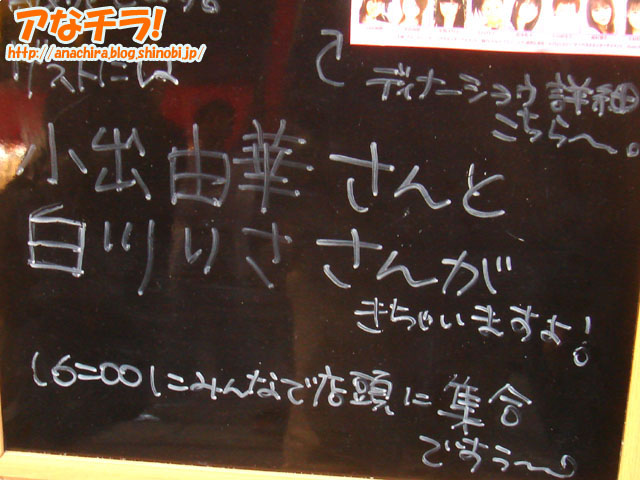 アなチラ!
http://anachira.blog.shinobi.jp/
ゲストには
ディナーショウ詳細
こちら〜。
小出由華さんと
白川りささんが
きちゃいますよ!
16:00にみんなで店頭に集合
ですぅ〜。